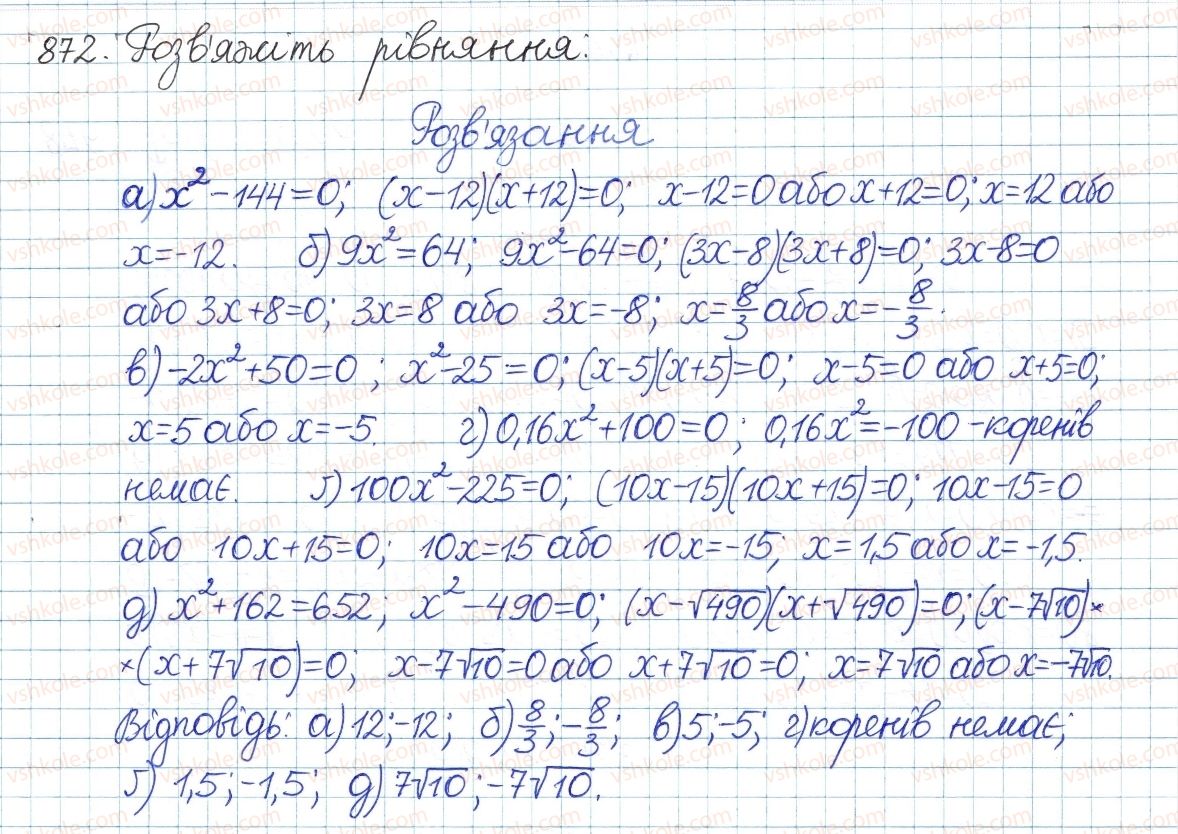 872. Розв'яжіть рівняння:
Розв'язання
а) x² - 144 = 0; (x - 12)(x + 12) = 0; x - 12 = 0 або x + 12 = 0; x = 12 або
x = -12. б) 9x² = 64; 9x² - 64 = 0; (3x - 8)(3x + 8) = 0; 3x - 8 = 0
або 3x + 8 = 0; 3x = 8 або 3x = -8; x = 8/3 або x = -8/3.
в) -2x² + 50 = 0; x² - 25 = 0; (x - 5)(x + 5) = 0; x - 5 = 0 або x + 5 = 0;
x = 5 або x = -5. г) 0,16x² + 100 = 0; 0,16x² = -100 - коренів
немає. ґ) 100x² - 225 = 0; (10x - 15)(10x + 15) = 0; 10x - 15 = 0
або 10x + 15 = 0; 10x = 15 або 10x = -15; x = 1,5 або x = -1,5.
д) x² + 162 = 652; x² - 490 = 0; (x - √490)(x + √490) = 0; (x - 7√10) ×
× (x + 7√10) = 0; x - 7√10 = 0 або x + 7√10 = 0; x = 7√10 або x = -7√10.
Відповідь: а) 12; -12; б) 8/3; -8/3; в) 5; -5; г) коренів немає;
ґ) 1,5; -1,5; д) 7√10; -7√10.